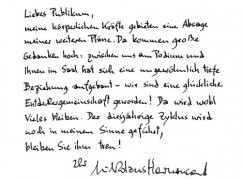 Liebes Publikum,
meine körperlichen Kräfte gebieten eine Absage
meiner weiteren Pläne. Da kommen große
Gedanken hoch: zwischen uns am Podium und
Ihnen im Saal hat sich eine ungewöhnlich tiefe
Beziehung aufgebaut – wir sind eine glückliche
Entdeckergemeinschaft geworden! Da wird wohl
Vieles bleiben. Der diesjährige Zyklus wird
noch in meinem Sinne geführt,
bleiben Sie ihm treu!
Ihr
Nikolaus Harnoncourt